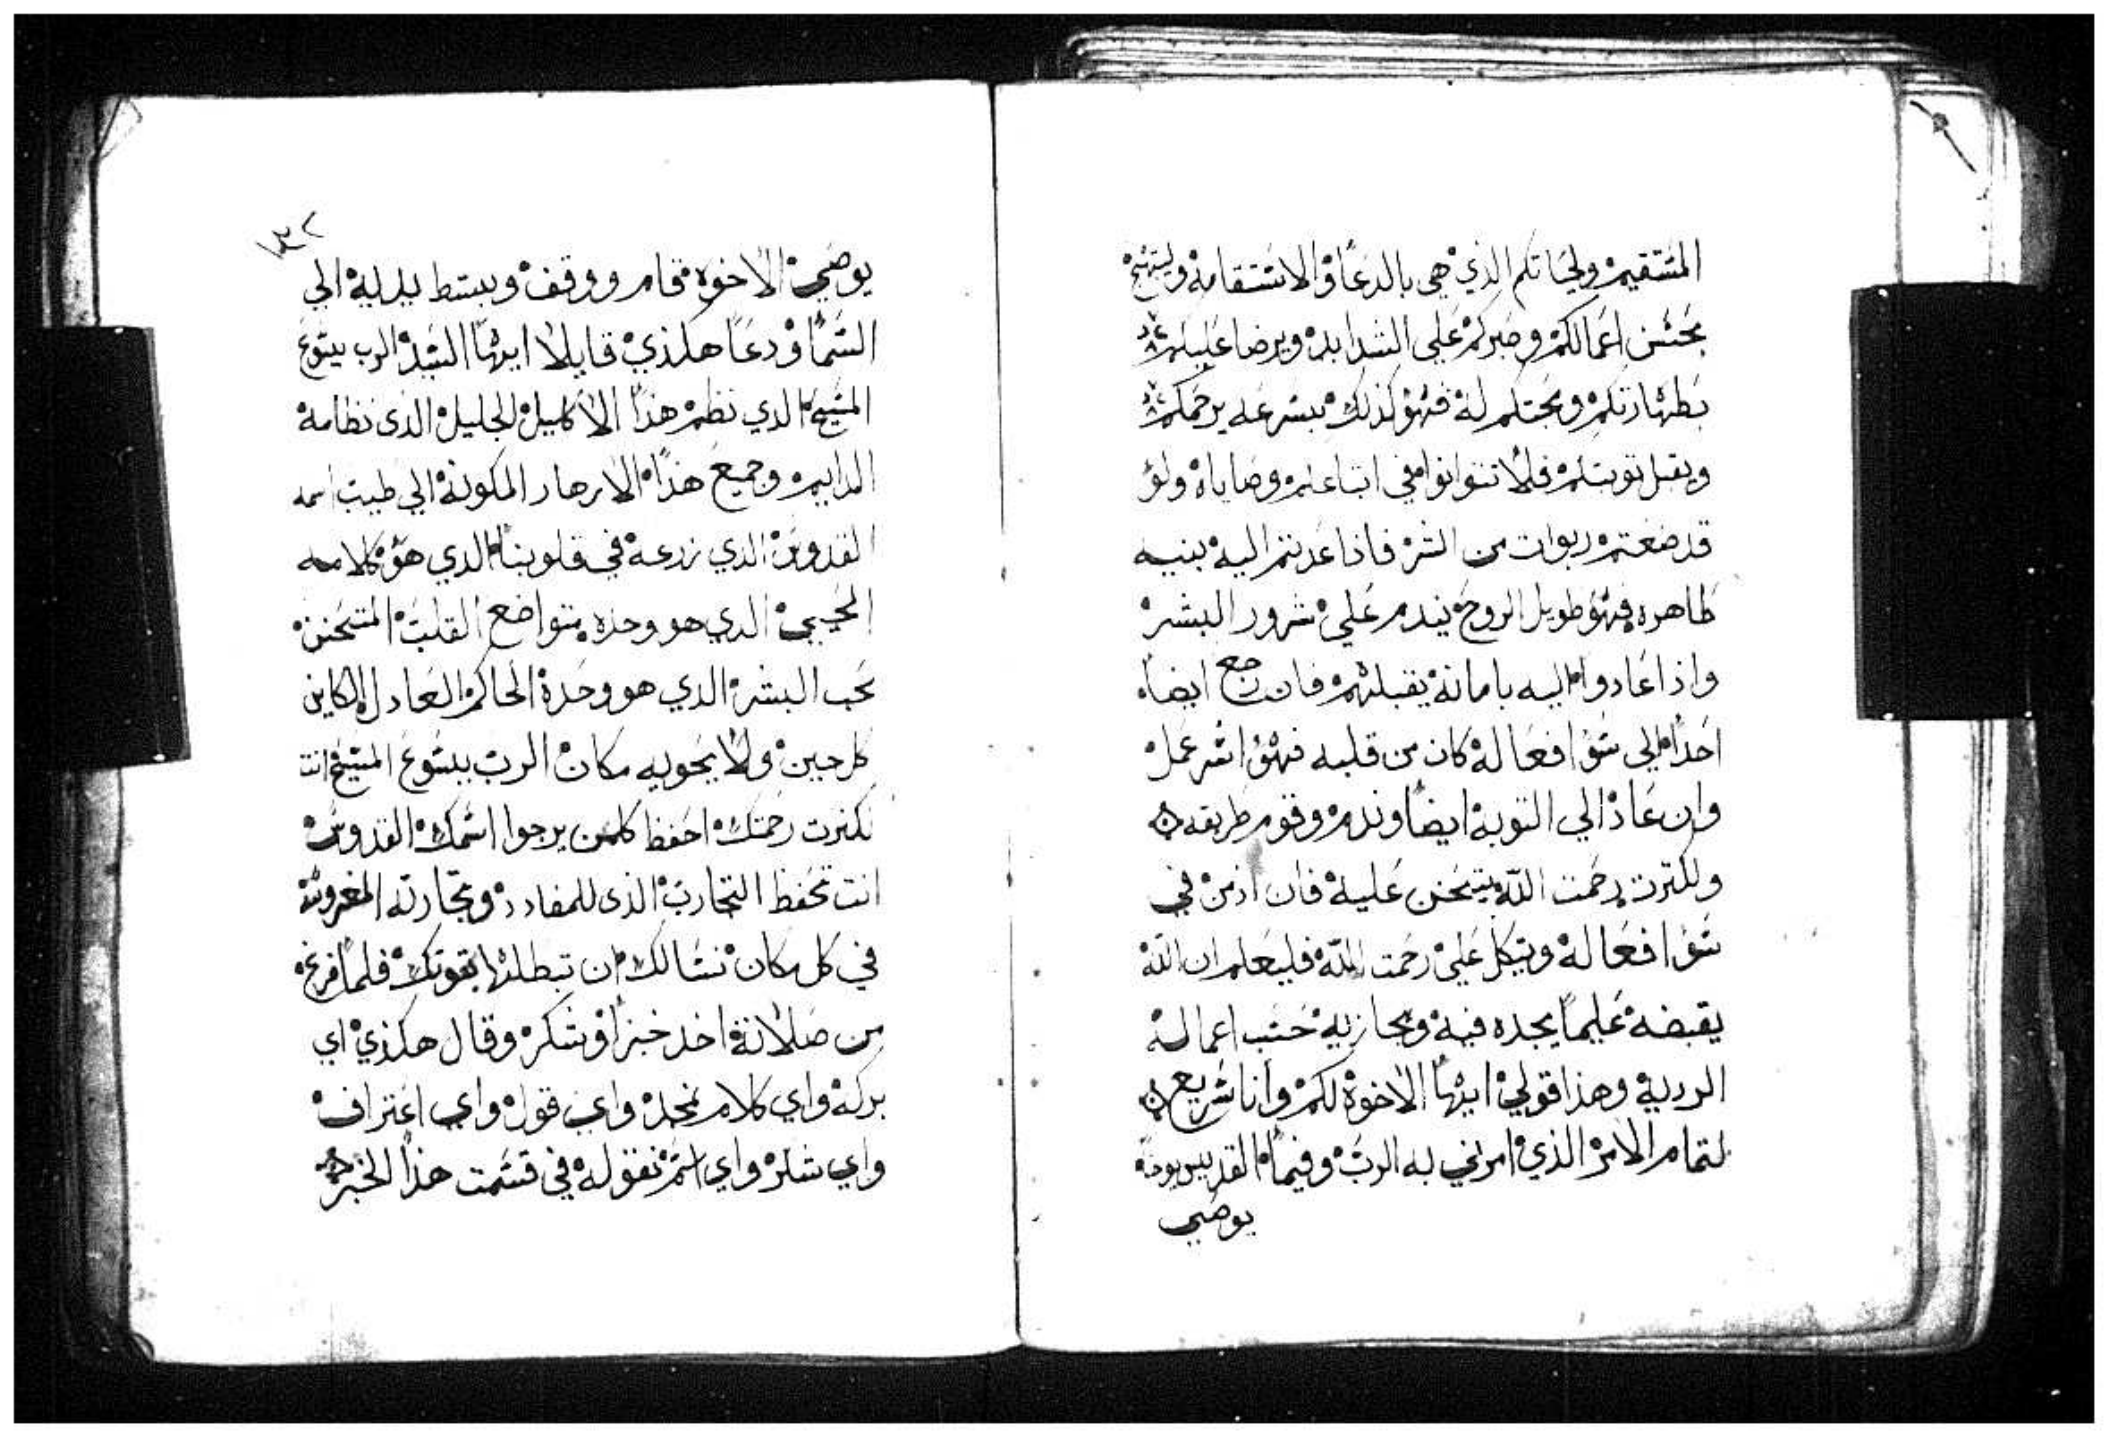 المستقيم ولحياتكم الذي هي بالدعا والاستقامة ويبتهج
بحسن اعمالكم وصبركم علي الشدايد ويرضا عليكم
بطهارتكم ومحبتكم له فهو كذلك بسرعه يرحمكم
ويقبل توبتكم فلا تتوانوا في اتباعكم وصاياه ولو
قد صنعتم ربوات من الشر فاذا عدتم اليه بنيه
طاهره فهو طويل الروح يندم علي شرور البشر
واذا عادوا اليه بامانة يقبلهم فان رجع ايضا
احدا الي سوا فعاله كان من قلبه فهو اشر عمل
وان عاد الي التوبة ايضا وندم وقوم طريقه
ولكترت رحمت الله يتحنن عليه فان ادمن في
سوا فعاله ويتكل علي رحمت الله فليعلم ان الله
يقبضه عليما يجده فيه ويجازيه حسب اعماله
الرديه وهذا قولي ايها الاخوة لكم وانا سريع
لتمام الامر الذي امرني به الرب وفيما القديس يوحنا
يوصي
١٣٢
يوصي الاخوه قام ووقف وبسط يديه الي
السما ودعا هكذي قايلا ايها السيد الرب يسوع
المسيح الدي نظم هذا الاكليل الجليل الذي نظامه
الدايم وجميع هذا الازهار المكونة الي طيب اسمه
القدوس الدي زرعه في قلوبنا الدي هو كلامه
المحيي الدي هو وحده متواضع القلب المتحنن
محب البشر الدي هو وحده الحاكم العادل الكاين
كل حين ولا يحويه مكان الرب يسوع المسيح انت
بكترت رحمتك احفظ كلمن يرجوا اسمك القدوس
انت تحفظ التجارب الذي للمضادد وتجارته المغروسه
في كل مكان نسالك ان تبطلها بقوتك فلما فرغ
من صلاته اخد خبزا وشكر وقال هكذي اي
بركه واي كلام نمجد واي قول واي اعتراف
واي شكر واي اسم نقوله في قسمت هذا الخبز